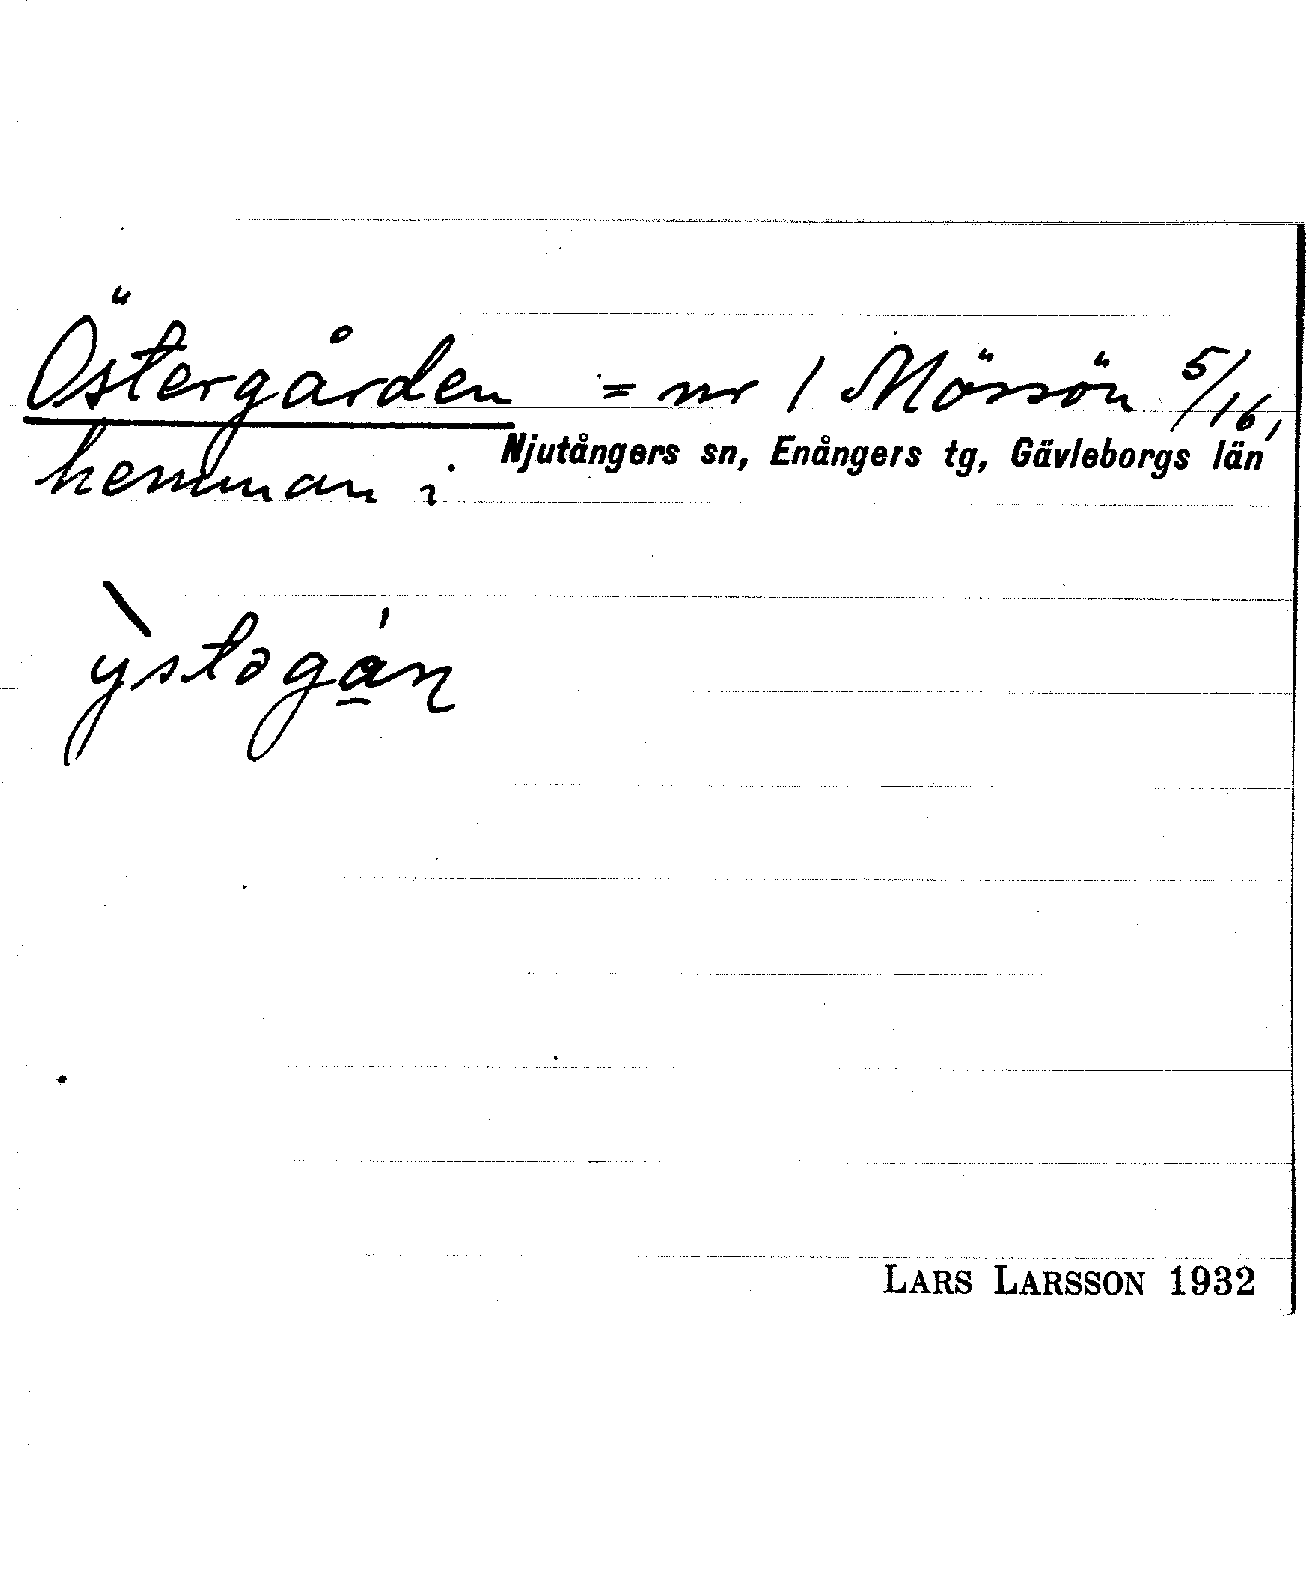 Östergården = nr 1 Mössön 5/16,
hemman i Njutångers sn, Enångers tg, Gävleborgs län
`ystəgá̱ɳ
LARS LARSSON 1932